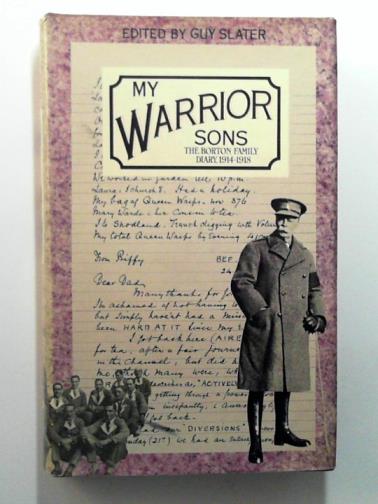 EDITED BY GUY SLATER
MY
WARRIOR
SONS
THE BORTON FAMILY
DIARY, 1914-1918
We worked in garden till 10 p.m.
Laura & church 8. Had a holiday.
My bag of Queen Wasps now 376
Mary Warde & her Cousin to tea.
To Snodland. Trench digging with Volun
My total Queen Wasps by evening
From Biffy
BEF
24
Dear Dad,
Many thanks for
I'm ashamed of not having
but simply haven't had a minu
been HARD AT IT since my
I got back here (AIRE
for tea, after a fair journe
in the Channel, but did
me, which many were,
"ACTIVELY
getting through a
instantly, I
back.
our "DIVERSIONS"
(21st) we had an